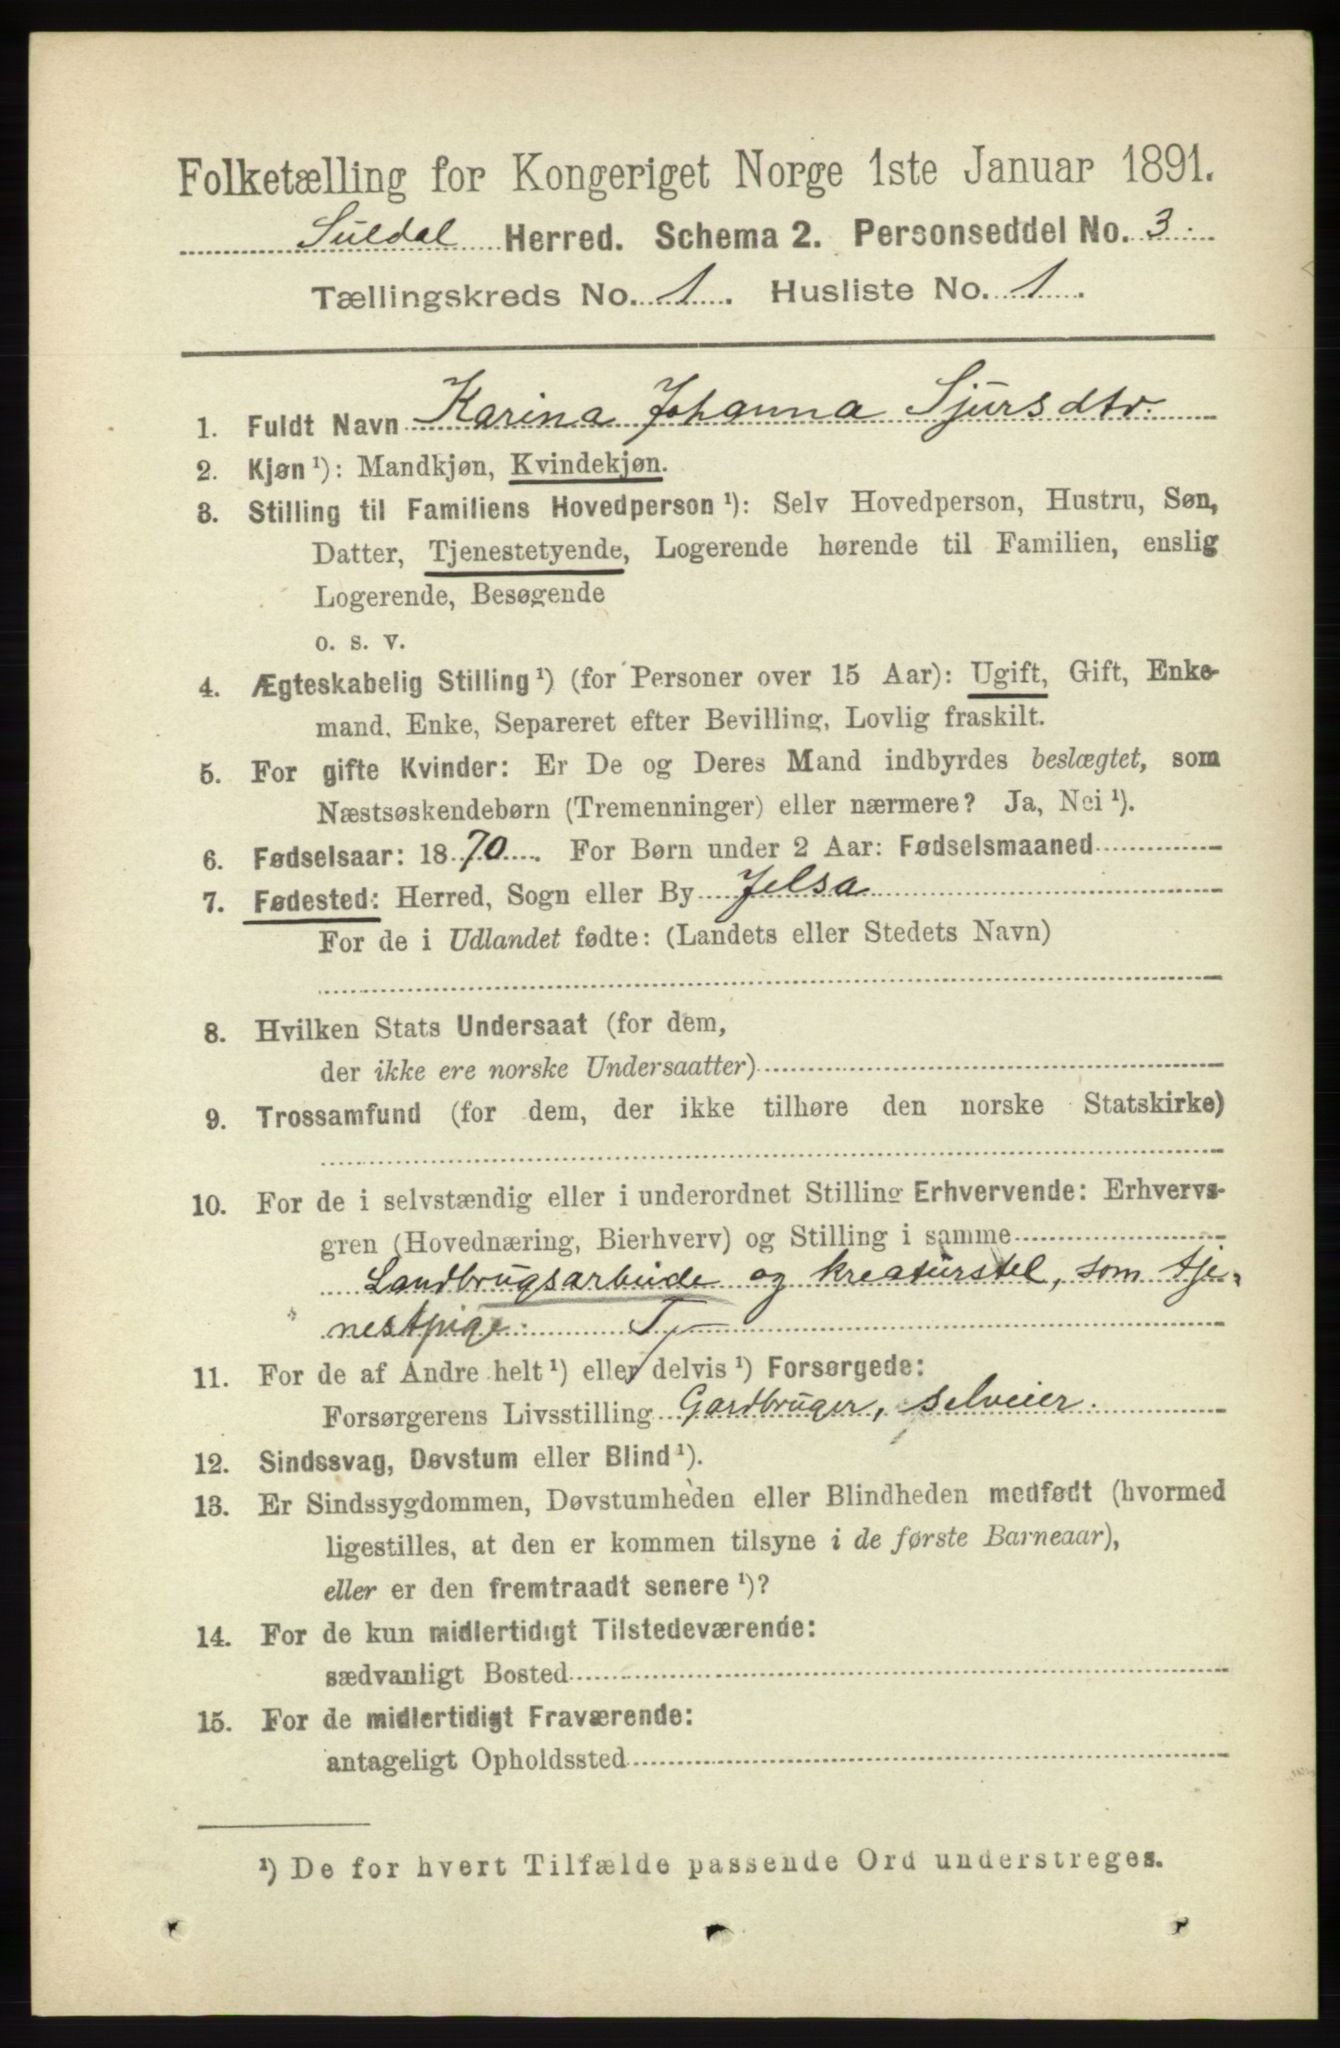 Folketælling for Kongeriget Norge 1ste Januar 1891.
Suldal Herred. Schema 2. Personseddel No. 3.
Tællingskreds No. 1. Husliste No. 1.
1. Fuldt Navn Karina Johanna Sjursdtr.
2. Kjøn¹): Mandkjøn, Kvindekjøn.
3. Stilling til Familiens Hovedperson¹): Selv Hovedperson, Hustru, Søn,
Datter, Tjenestetyende, Logerende hørende til Familien, enslig
Logerende, Besøgende
o. s. v.
4. Ægteskabelig Stilling¹) (for Personer over 15 Aar): Ugift, Gift, Enke-
mand, Enke, Separeret efter Bevilling, Lovlig fraskilt.
5. For gifte Kvinder: Er De og Deres Mand indbyrdes beslægtet, som
Næstsøskendebørn (Tremenninger) eller nærmere? Ja, Nei¹).
6. Fødselsaar: 1870. For Børn under 2 Aar: Fødselsmaaned
7. Fødested: Herred, Sogn eller By Jelsa
For de i Udlandet fødte: (Landets eller Stedets Navn)
8. Hvilken Stats Undersaat (for dem,
der ikke ere norske Undersaatter)
9. Trossamfund (for dem, der ikke tilhøre den norske Statskirke)
10. For de i selvstændig eller i underordnet Stilling Erhvervende: Erhvervs-
gren (Hovednæring, Bierhverv) og Stilling i samme
Landbrugsarbeide og kreaturstel, som tje-
nestpige. T
11. For de af Andre helt¹) eller delvis¹) Forsørgede:
Forsørgerens Livsstilling Gardbruger, selveier.
12. Sindssvag, Døvstum eller Blind¹).
13. Er Sindssygdommen, Døvstumheden eller Blindheden medfødt (hvormed
ligestilles, at den er kommen tilsyne i de første Barneaar),
eller er den fremtraadt senere¹)?
14. For de kun midlertidigt Tilstedeværende:
sædvanligt Bosted
15. For de midlertidigt Fraværende:
antageligt Opholdssted
¹) De for hvert Tilfælde passende Ord understreges.